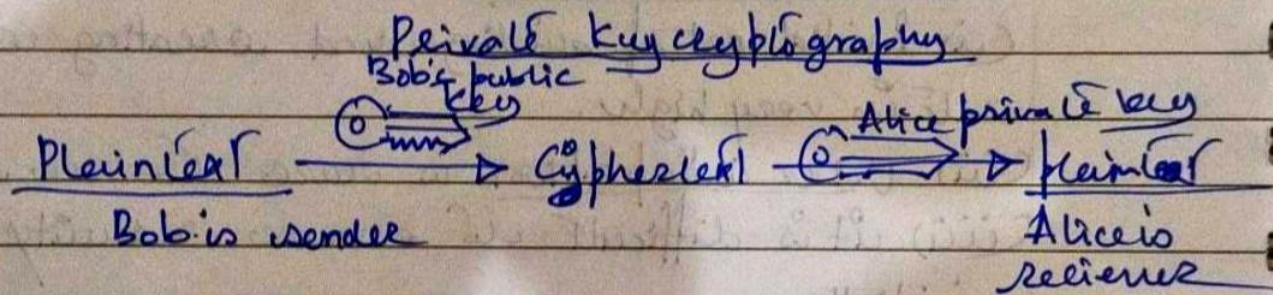 Private key cryptography
Bob's public key
Alice private key
Plaintext Cyphertext plaintext
Bob is sender Alice is
reciever